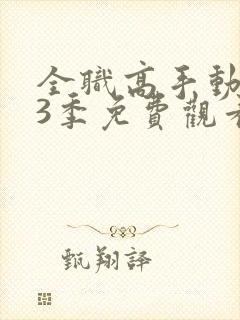 全職高手動
3季免費觀看
甄翔譯